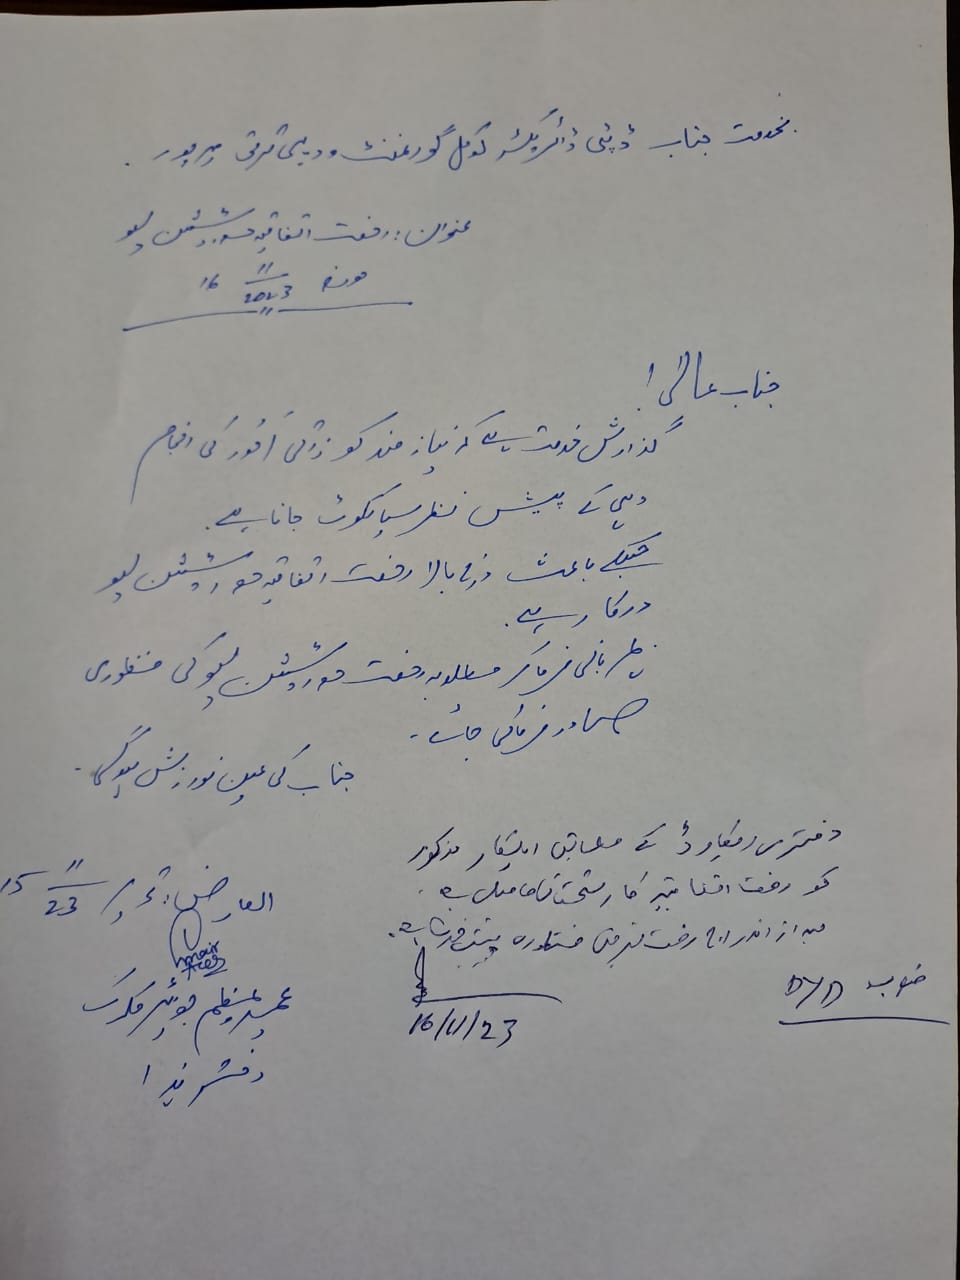 بخدمت جناب ڈپٹی ڈائریکٹر لوکل گورنمنٹ و دیہی ترقی میرپور۔
عنوان: رخصت اتفاقیہ معہ اسٹیشن لیو
مورخہ 16 11 2023
جناب عالی!
گذارش خدمت ہے کہ نیاز مند کو ذاتی امور کی انجام
دہی کے پیش نظر سیالکوٹ جانا ہے۔
جسکے باعث درج بالا رخصت اتفاقیہ معہ اسٹیشن لیو
درکار ہے۔
مہربانی فرما کر مطلوبہ رخصت معہ اسٹیشن لیو کی منظوری
صادر فرمائی جائے۔
جناب کی عین نوازش ہوگی۔
العارض: تحریر 15 11 23
عمیر جونیئر کلرک
دفتر ہذا
دفتری ریکارڈ کے مطابق اہلکار مذکور
کو رخصت اتفاقیہ کا استحقاق حاصل ہے۔
بعد از اندراج رخصت بغرض منظوری پیش خدمت ہے۔
16/11/23
جناب D/D